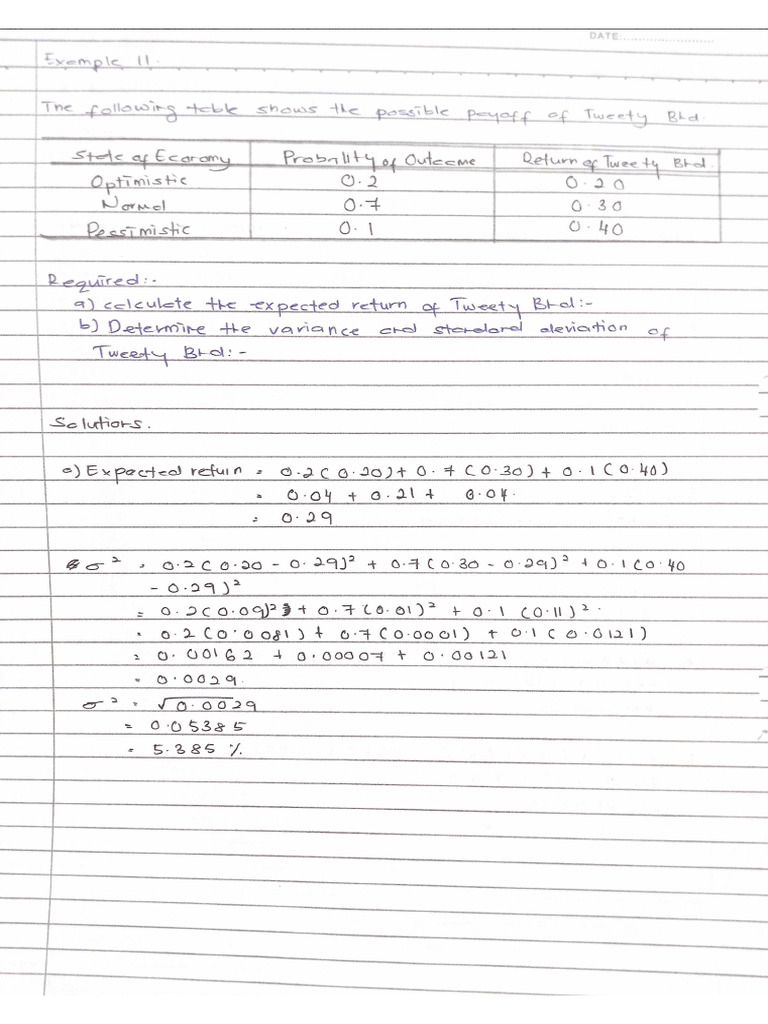 DATE:
Example 11.
The following table shows the possible payoff of Tweety Bhd.
State of Economy Probility of Outcome Return of Tweety Bhd.
Optimistic 0.2 0.20
Normal 0.7 0.30
Pessimistic 0.1 0.40
Required:-
a) calculate the expected return of Tweety Bhd:-
b) Determine the variance and standard deviation of
Tweety Bhd:-
Solutions.
a) Expected return = 0.2(0.20) + 0.7(0.30) + 0.1(0.40)
= 0.04 + 0.21 + 0.04.
= 0.29
σ² = 0.2(0.20 - 0.29)² + 0.7(0.30 - 0.29)² + 0.1(0.40
- 0.29)²
= 0.2(0.09)² + 0.7(0.01)² + 0.1(0.11)².
= 0.2(0.0081) + 0.7(0.0001) + 0.1(0.0121)
= 0.00162 + 0.00007 + 0.00121
= 0.0029.
σ² = √0.0029
= 0.05385
= 5.385 %